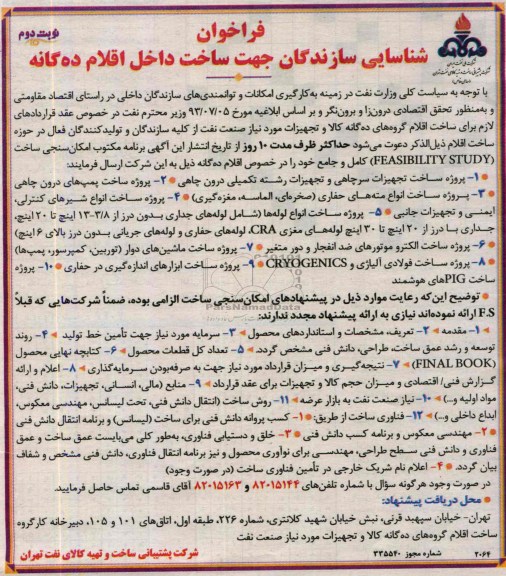 نوبت دوم
فراخوان
شناسایی سازندگان جهت ساخت داخل اقلام ده‌گانه
با توجه به سیاست کلی وزارت نفت در زمینه به‌کارگیری امکانات و توانمندی‌های سازندگان داخلی در راستای اقتصاد مقاومتی
و به‌منظور تحقق اقتصادی درون‌زا و برون‌نگر و بر اساس ابلاغیه مورخ ۹۳/۰۷/۰۵ وزیر محترم نفت در خصوص عقد قراردادهای
لازم برای ساخت اقلام گروه‌های ده‌گانه کالا و تجهیزات مورد نیاز صنعت نفت از کلیه سازندگان و تولیدکنندگان فعال در حوزه
ساخت اقلام ذیل‌الذکر دعوت می‌شود حداکثر ظرف مدت ۱۰ روز از تاریخ انتشار این آگهی برنامه مکتوب امکان‌سنجی ساخت
(FEASIBILITY STUDY) کامل و جامع خود را در خصوص اقلام ده‌گانه ذیل به این شرکت ارسال فرمایند:
۱- پروژه ساخت تجهیزات سرچاهی و تجهیزات رشته تکمیلی درون چاهی ۲- پروژه ساخت پمپ‌های درون چاهی
۳- پروژه ساخت انواع مته‌های حفاری (صخره‌ای، الماسه، مغزه‌گیری) ۴- پروژه ساخت انواع شیرهای کنترلی،
ایمنی و تجهیزات جانبی ۵- پروژه ساخت انواع لوله‌ها (شامل لوله‌های جداری بدون درز از ۱۳-۳/۸ اینچ تا ۲۰ اینچ،
جداری با درز از ۲۰ اینچ تا ۳۰ اینچ لوله‌های مغزی CRA، لوله‌های حفاری و لوله‌های جریانی بدون درز بالای ۶ اینچ)
۶- پروژه ساخت الکترو موتورهای ضد انفجار و دور متغیر ۷- پروژه ساخت ماشین‌های دوار (توربین، کمپرسور، پمپ‌ها)
۸- پروژه ساخت فولادی آلیاژی و CRYOGENICS ۹- پروژه ساخت ابزارهای اندازه‌گیری در حفاری ۱۰- پروژه
ساخت PIGهای هوشمند
توضیح این‌که رعایت موارد ذیل در پیشنهادهای امکان‌سنجی ساخت الزامی بوده، ضمناً شرکت‌هایی که قبلاً
F.S ارائه نموده‌اند نیازی به ارائه پیشنهاد مجدد ندارند:
۱- مقدمه ۲- تعریف، مشخصات و استانداردهای محصول ۳- سرمایه مورد نیاز جهت تأمین خط تولید ۴- روند
توسعه و رشد عمق ساخت، طراحی، دانش فنی مشخص گردد. ۵- تعداد کل قطعات محصول ۶- کتابچه نهایی محصول
(FINAL BOOK) ۷- نتیجه‌گیری و میزان قرارداد مورد نیاز جهت به صرفه‌بودن سرمایه‌گذاری ۸- اعلام و ارائه
گزارش فنی/ اقتصادی و میزان حجم کالا و تجهیزات برای عقد قرارداد ۹- منابع (مالی، انسانی، تجهیزات، دانش فنی،
مواد اولیه و...) ۱۰- نیاز صنعت نفت به بازار عرضه ۱۱- روش ساخت (انتقال دانش فنی، تحت لیسانس، مهندسی معکوس،
ابداع داخلی و...) ۱۲- فناوری ساخت از طریق: ۱- کسب پروانه دانش فنی برای ساخت (لیسانس) و برنامه انتقال دانش فنی
۲- مهندسی معکوس و برنامه کسب دانش فنی ۳- خلق و دستیابی فناوری، به‌طور کلی می‌بایست عمق ساخت و عمق
فناوری و دانش فنی سطح طراحی، مهندسی برای نوآوری محصول و نیز برنامه انتقال فناوری، دانش فنی مشخص و شفاف
بیان گردد. ۴- اعلام نام شریک خارجی در تأمین فناوری ساخت (در صورت وجود)
در صورت وجود هرگونه سؤال با شماره تلفن‌های ۸۲۰۱۵۱۴۴ و ۸۲۰۱۵۱۶۳ آقای قاسمی تماس حاصل فرمایید.
محل دریافت پیشنهاد:
تهران- خیابان سپهبد قرنی، نبش خیابان شهید کلانتری، شماره ۲۲۶، طبقه اول، اتاق‌های ۱۰۱ و ۱۰۵، دبیرخانه کارگروه
ساخت اقلام گروه‌های ده‌گانه کالا و تجهیزات مورد نیاز صنعت نفت
۲۰۶۴ شماره مجوز ۳۳۵۵۴۰ شرکت پشتیبانی ساخت و تهیه کالای نفت تهران
ParsNamadData